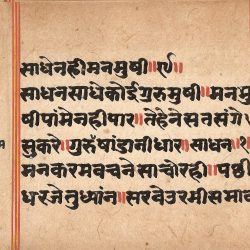 साधेनहीमनमुषी॥९४॥
साधनसाधेकोईगुरुमुषी॥मनमु
षीपांमेनहीपार॥तेहेनेसतसंगे
सुकरे॥गुरुषांडानीधार॥साधन॥१
मनकरमवचनेसाचोरही॥पृष्ठी
धरजेतुध्यांन॥सरवेउरमीसमाव